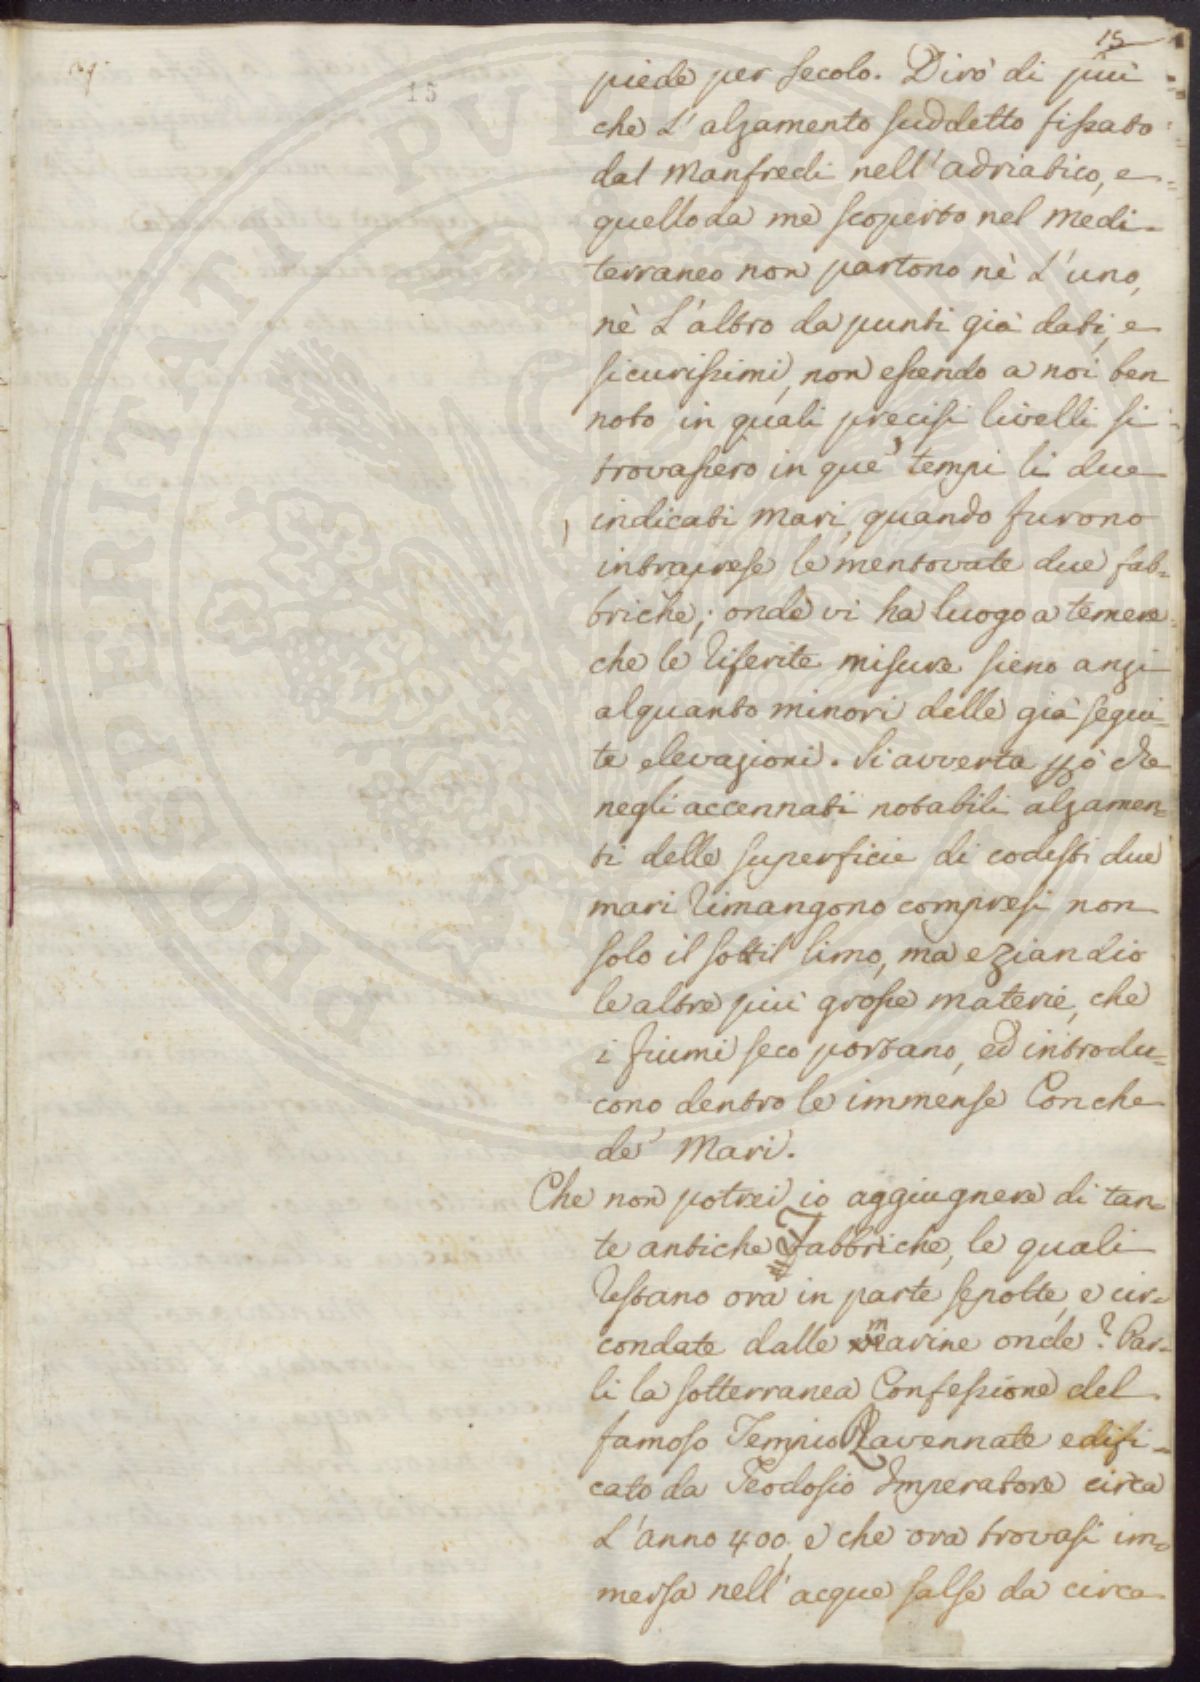 15
15
piede per secolo. Dirò di più
che L'alzamento suddetto fissato
dal Manfredi nell'adriatico, e
quello da me scoperto nel Medi-
terraneo non partono nè L'uno,
nè L'altro da punti già dati, e
sicurissimi, non essendo a noi ben
noto in quali precisi livelli si
trovassero in que' tempi li due
indicati mari, quando furono
intraprese le mentovate due fab-
briche; onde vi ha luogo a temere
che le riferite misure sieno anzi
alquanto minori delle già segui-
te elevazioni. Si avverta però che
negli accennati notabili alzamen-
ti delle superficie di codesti due
mari rimangono compresi non
solo il sottil limo, ma eziandio
le altre più grosse materie, che
i fiumi seco portano, ed introdu-
cono dentro le immense Conche
de' Mari.
Che non potrei io aggiugnere di tan-
te antiche fabbriche, le quali
restano ora in parte sepolte, e cir-
condate dalle marine onde? Par-
li la sotterranea Confessione del
famoso Tempio Ravennate edifi-
cato da Teodosio Imperatore circa
L'anno 400, e che ora trovasi im-
mersa nell'acque salse da circa
PROSPERITATI PVBLICAE